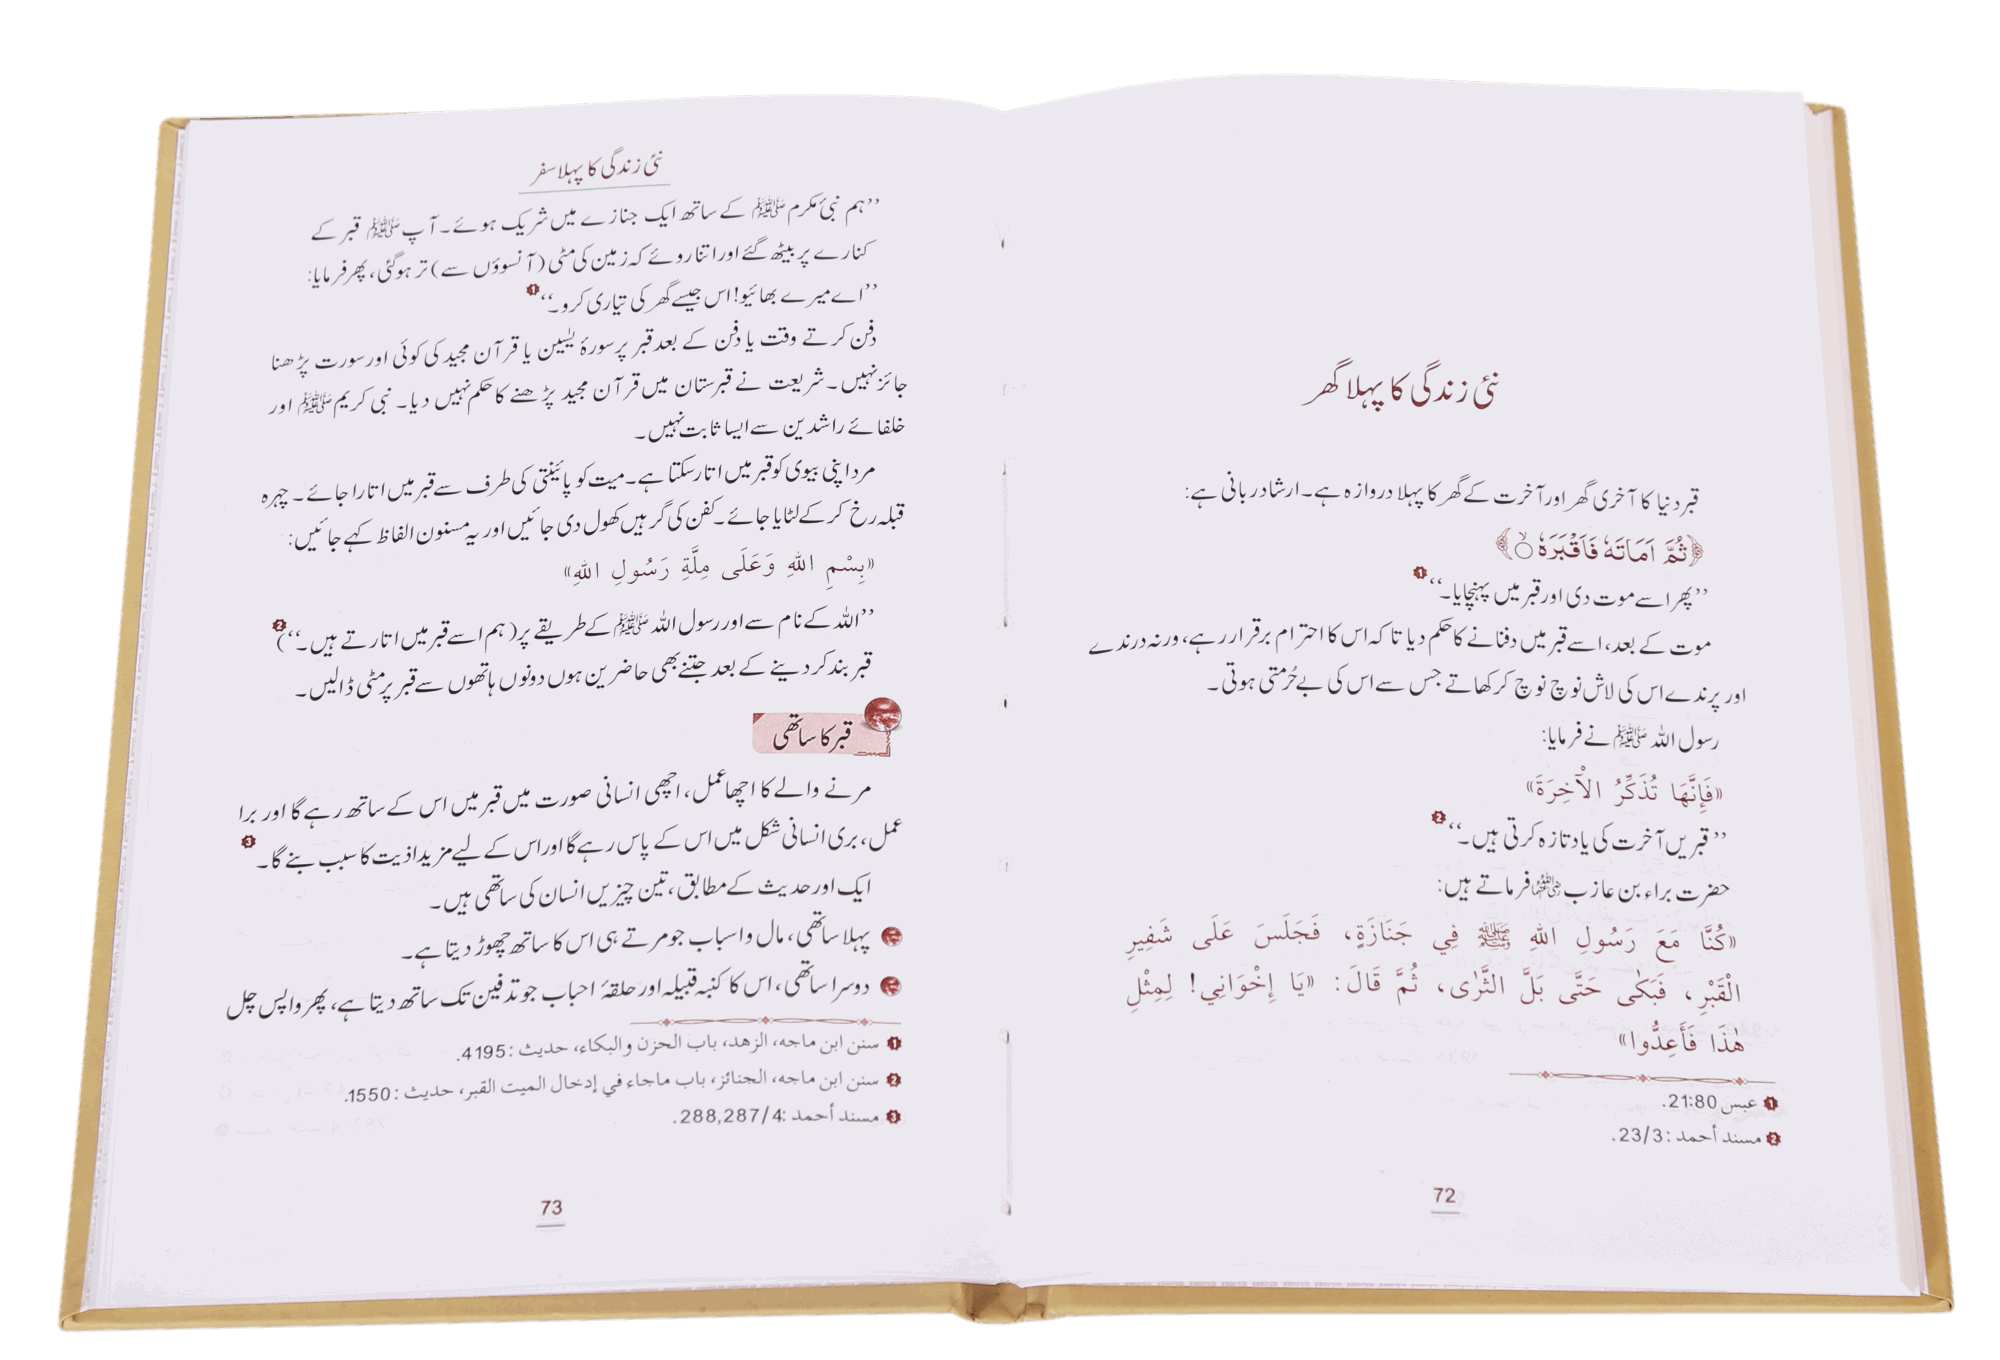 نئی زندگی کا پہلا گھر
قبر دنیا کا آخری گھر اور آخرت کے گھر کا پہلا دروازہ ہے۔ ارشاد ربانی ہے:
﴿ثُمَّ اَمَاتَهٗ فَاَقْبَرَهٗ ۝﴾
’’پھر اسے موت دی اور قبر میں پہنچایا۔‘‘ 1
موت کے بعد، اسے قبر میں دفنانے کا حکم دیا تا کہ اس کا احترام برقرار رہے، ورنہ درندے
اور پرندے اس کی لاش نوچ نوچ کر کھاتے جس سے اس کی بے حُرمتی ہوتی۔
رسول اللہ ﷺ نے فرمایا:
«فَإِنَّهَا تُذَكِّرُ الْآخِرَةَ»
’’قبریں آخرت کی یاد تازہ کرتی ہیں۔‘‘ 2
حضرت براء بن عازب رضی اللہ عنہما فرماتے ہیں:
«كُنَّا مَعَ رَسُولِ اللهِ ﷺ فِي جَنَازَةٍ، فَجَلَسَ عَلَى شَفِيرِ
الْقَبْرِ، فَبَكٰى حَتَّى بَلَّ الثَّرٰى، ثُمَّ قَالَ: «يَا إِخْوَانِي! لِمِثْلِ
هٰذَا فَأَعِدُّوا»
1 عبس 21:80.
2 مسند أحمد: 23/3.
72
نئی زندگی کا پہلا سفر
’’ہم نبیٔ مکرم ﷺ کے ساتھ ایک جنازے میں شریک ہوئے۔ آپ ﷺ قبر کے
کنارے پر بیٹھ گئے اور اتنا روئے کہ زمین کی مٹی (آنسوؤں سے) تر ہو گئی، پھر فرمایا:
’’اے میرے بھائیو! اس جیسے گھر کی تیاری کرو۔‘‘ 1
دفن کرتے وقت یا دفن کے بعد قبر پر سورۂ یٰسین یا قرآن مجید کی کوئی اور سورت پڑھنا
جائز نہیں۔ شریعت نے قبرستان میں قرآن مجید پڑھنے کا حکم نہیں دیا۔ نبی کریم ﷺ اور
خلفائے راشدین سے ایسا ثابت نہیں۔
مرد اپنی بیوی کو قبر میں اتار سکتا ہے۔ میت کو پائینتی کی طرف سے قبر میں اتارا جائے۔ چہرہ
قبلہ رخ کر کے لٹایا جائے۔ کفن کی گرہیں کھول دی جائیں اور یہ مسنون الفاظ کہے جائیں:
«بِسْمِ اللهِ وَعَلَى مِلَّةِ رَسُولِ اللهِ»
’’اللہ کے نام سے اور رسول اللہ ﷺ کے طریقے پر (ہم اسے قبر میں اتارتے ہیں۔‘‘) 2
قبر بند کر دینے کے بعد جتنے بھی حاضرین ہوں دونوں ہاتھوں سے قبر پر مٹی ڈالیں۔
قبر کا ساتھی
مرنے والے کا اچھا عمل، اچھی انسانی صورت میں قبر میں اس کے ساتھ رہے گا اور برا
عمل، بری انسانی شکل میں اس کے پاس رہے گا اور اس کے لیے مزید اذیت کا سبب بنے گا۔ 3
ایک اور حدیث کے مطابق، تین چیزیں انسان کی ساتھی ہیں۔
پہلا ساتھی، مال و اسباب جو مرتے ہی اس کا ساتھ چھوڑ دیتا ہے۔
دوسرا ساتھی، اس کا کنبہ قبیلہ اور حلقۂ احباب جو تدفین تک ساتھ دیتا ہے، پھر واپس چل
1 سنن ابن ماجه، الزهد، باب الحزن والبكاء، حديث: 4195.
2 سنن ابن ماجه، الجنائز، باب ماجاء في إدخال الميت القبر، حديث: 1550.
3 مسند أحمد: 288,287/4.
73